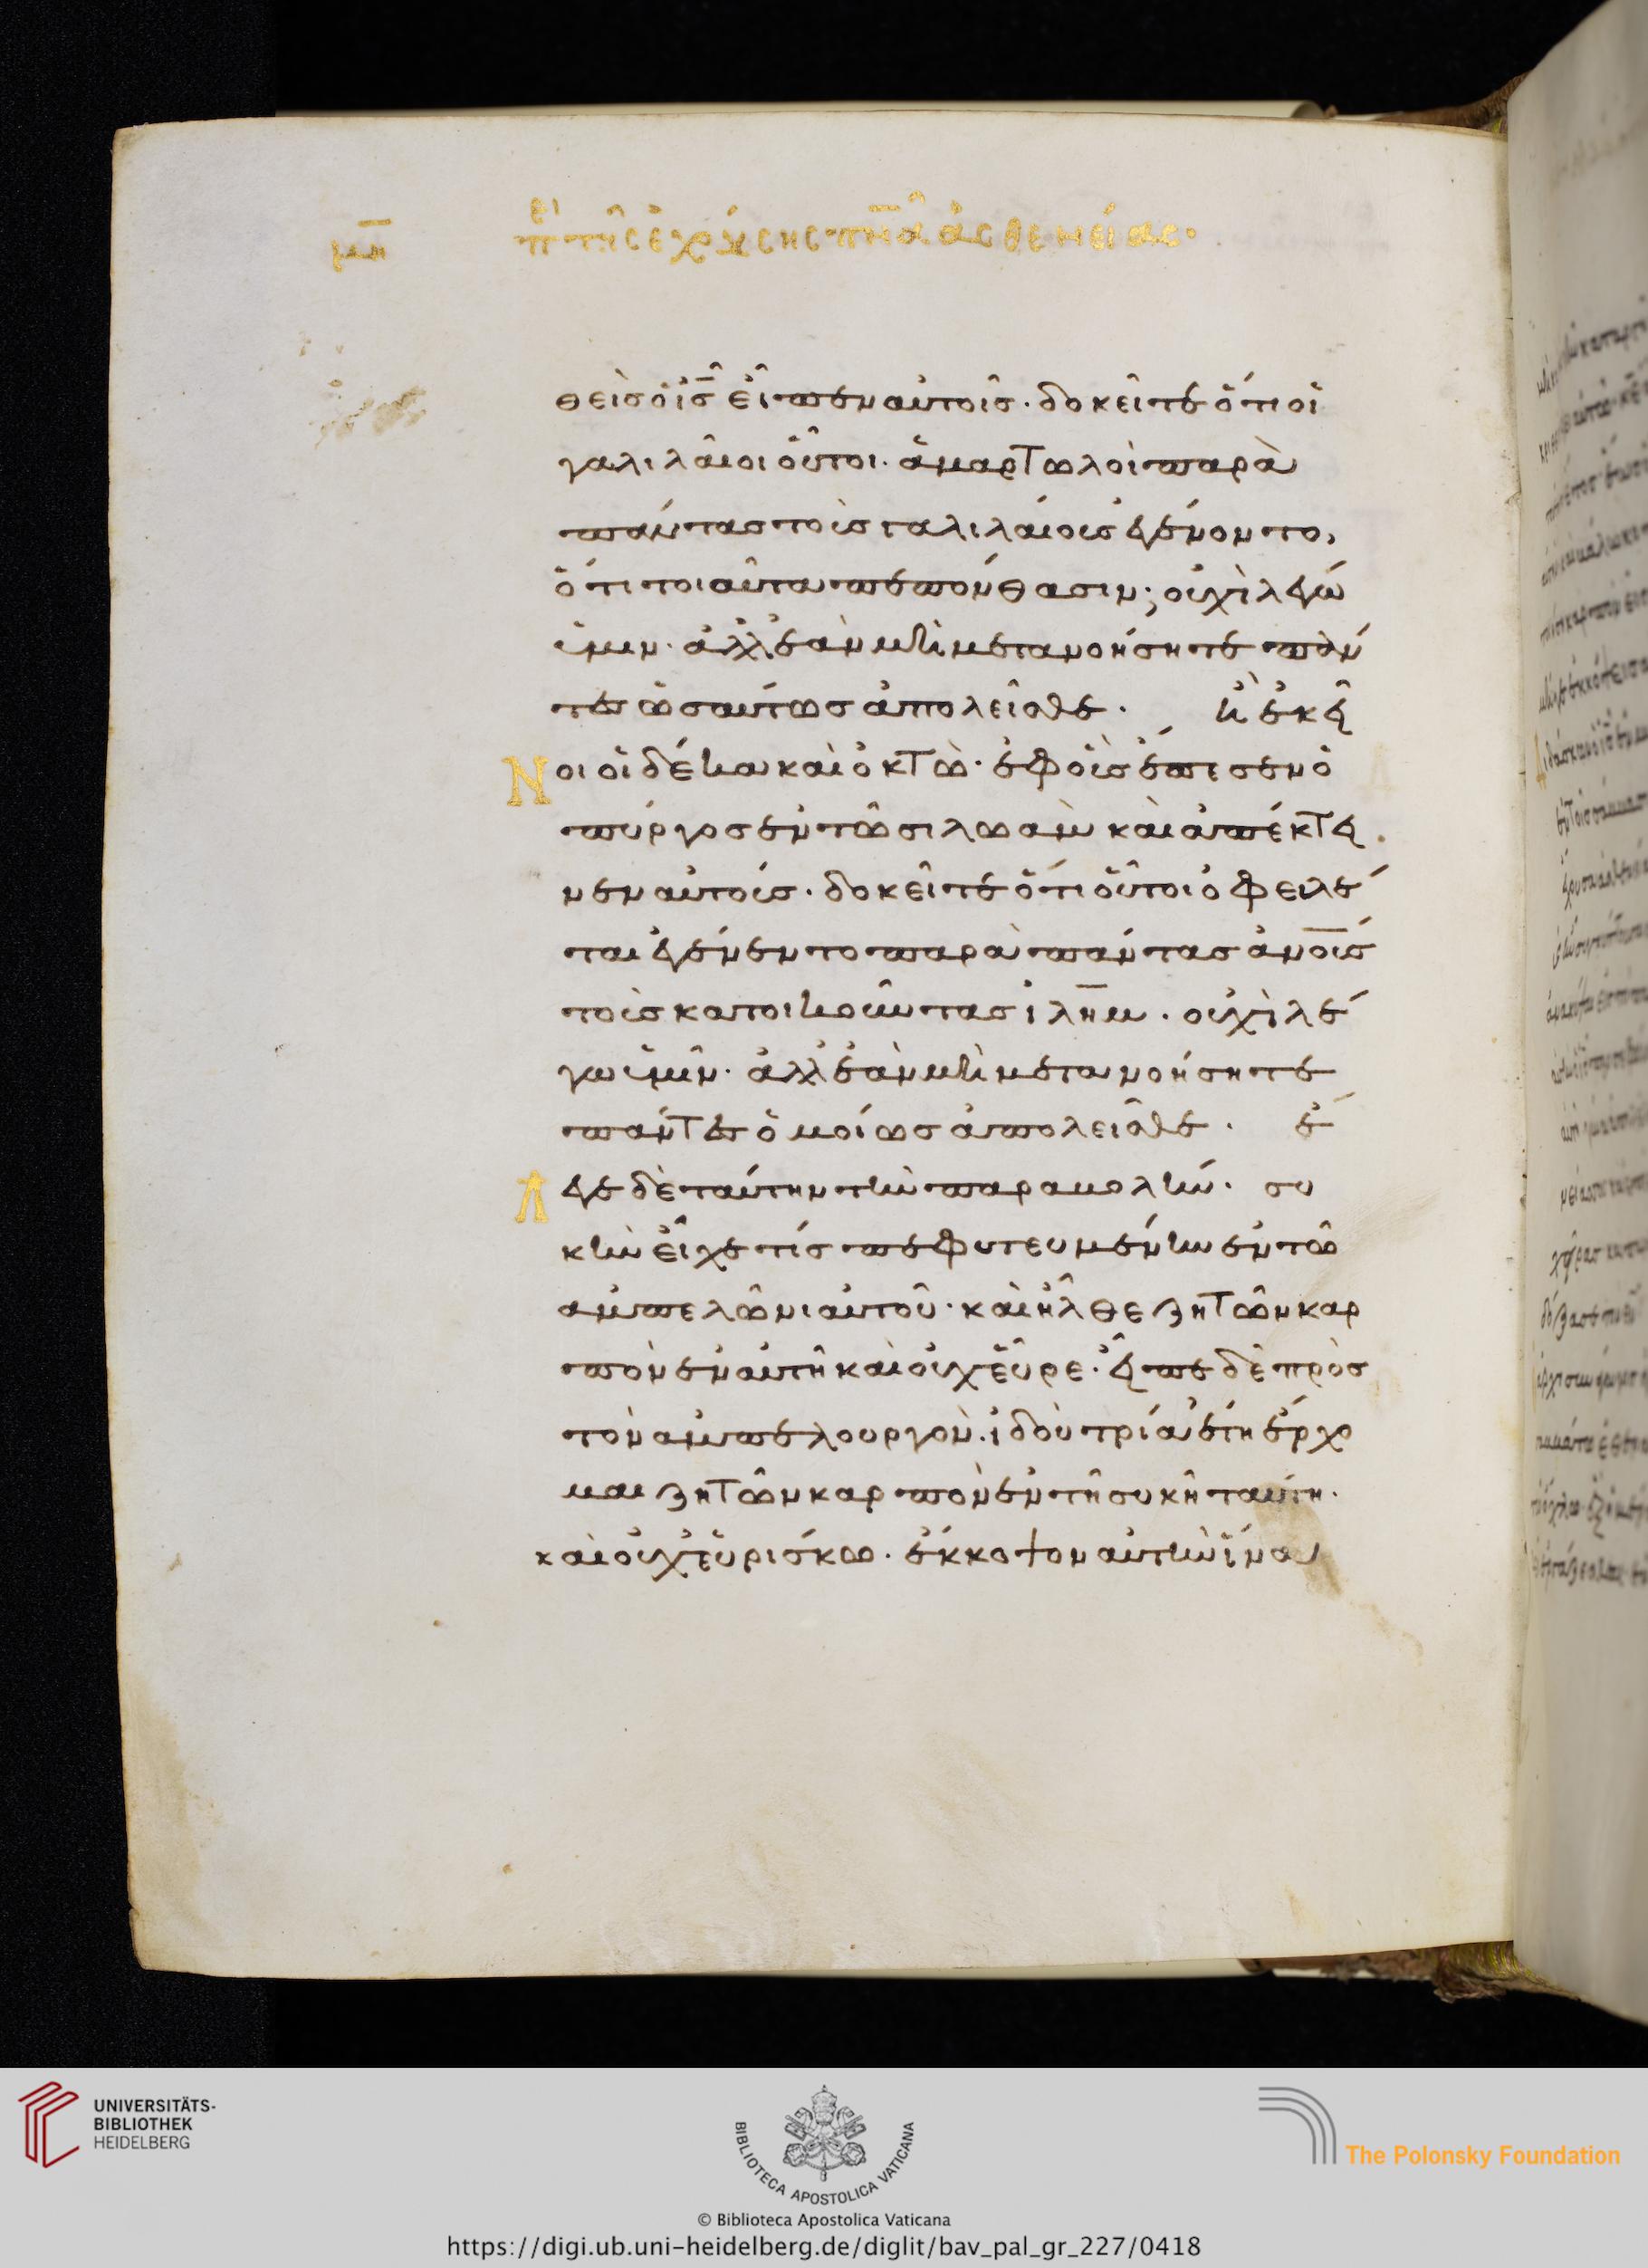 μη
πὲ τῆς ἐχούσης πν̅α ἀσθενείας·
θεὶς ὁ ἰ̅ς̅ εἶπεν αὐτοῖς· δοκεῖτε ὅτι οἱ
γαλιλαῖοι οὗτοι· ἁμαρτωλοὶ παρὰ
πάντας τοὺς γαλιλαίους ἐγένοντο,
ὅτι τοιαῦτα πεπόνθασιν; οὐχὶ λέγω
ὑμῖν· ἀλλ' ἐὰν μὴ μετανοήσητε πάν
τες ὡσαύτως ἀπολεῖσθε· ἢ ἐκεῖ
Νοι οἱ δέκα καὶ ὀκτὼ· ἐφ' οὓς ἔπεσεν ὁ
πύργος ἐν τῶ σιλωὰμ καὶ ἀπέκτει
νεν αὐτούς· δοκεῖτε ὅτι οὗτοι ὀφειλέ
ται ἐγένεντο παρὰ πάντας ἀν̅ο̅υ̅ς
τοὺς κατοικοῦντας ἰλη̅μ· οὐχὶ λέ
γω ὑμῖν· ἀλλ' ἐὰν μὴ μετανοήσητε
πάντες ὁμοίως ἀπολεῖσθε· ἔ
Λεγε δὲ ταύτην τὴν παραβολήν· συ
κὴν εἶχε τίς πεφυτευμένην ἐν τῶ
ἀμπελῶνι αὐτοῦ· καὶ ἦλθε ζητῶν καρ
πὸν ἐν αὐτῆ καὶ οὐχ εὗρε· εἶπε δὲ πρὸς
τὸν ἀμπελουργόν· ἰδοὺ τρία ἔτη ἔρχο
μαι ζητῶν καρπὸν ἐν τῆ συκῆ ταύτη·
καὶ οὐχ εὑρίσκω· ἔκκοψον αὐτὴν ἵνα
UNIVERSITÄTS-
BIBLIOTHEK
HEIDELBERG
BIBLIOTECA APOSTOLICA VATICANA
The Polonsky Foundation
© Biblioteca Apostolica Vaticana
https://digi.ub.uni-heidelberg.de/diglit/bav_pal_gr_227/0418